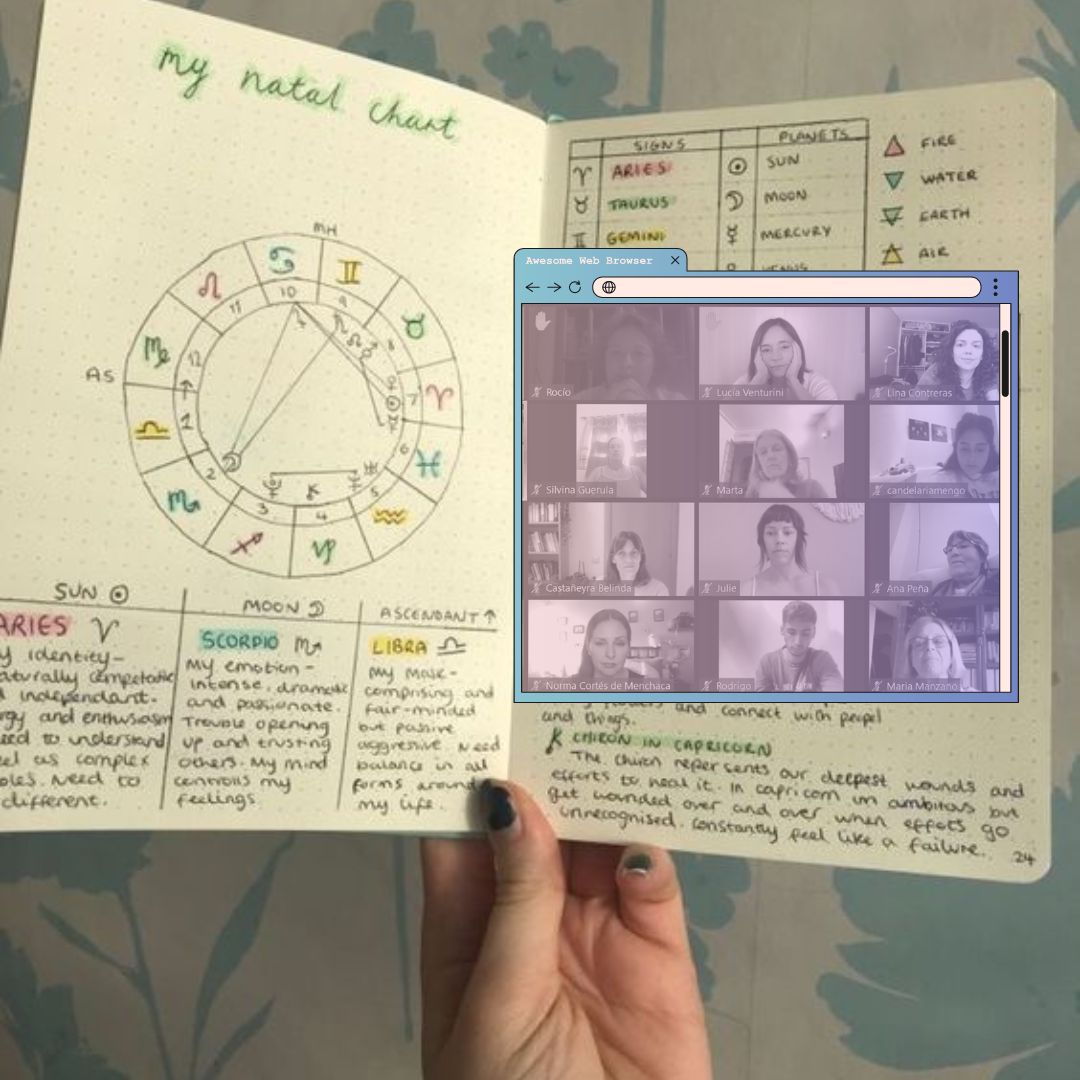 my natal chart
MH
AS
10
9
8
7
6
5
4
3
2
1
12
11
SUN
ARIES
y identity-
aturally competative
d independant.
rgy and enthusiasm
eed to understand
el as complex
ples. Need to
different.
MOON
SCORPIO
My emotion -
intense, dramatic
and passionate.
Trouble opening
up and trusting
others. My mind
controlls my
feelings.
ASCENDANT
LIBRA
My mask -
comprising and
fair-minded
but passive
aggressive. Need
balance in all
forms around
my life.
SIGNS
PLANETS
ARIES
SUN
TAURUS
MOON
GEMINI
MERCURY
VENUS
FIRE
WATER
EARTH
AIR
Awesome Web Browser
Rocío
Lucía Venturini
Lina Contreras
Silvina Guerula
Marta
candelariamengo
Castañeyra Belinda
Julie
Ana Peña
Norma Cortés de Menchaca
Rodrigo
Maria Manzano
and connect with peopel
and things.
CHIRON IN CAPRICORN
The chiron repersents our deepest wounds and
efforts to heal it. In capricorn im ambitous but
get wounded over and over when effots go
unrecognised. Constantly feel like a failure.
24